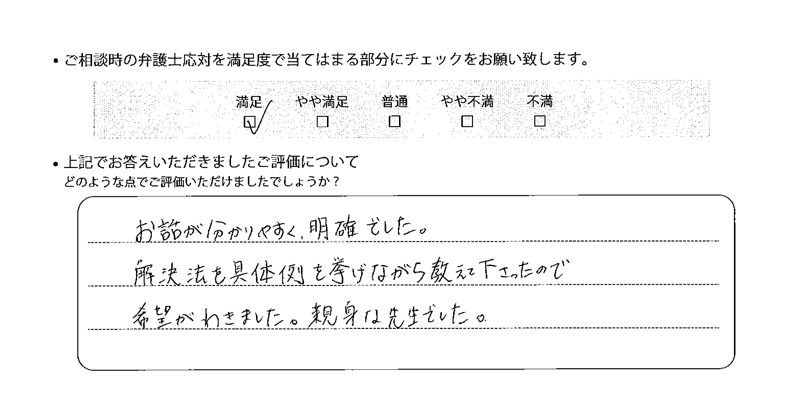 • ご相談時の弁護士応対を満足度で当てはまる部分にチェックをお願い致します。
満足 やや満足 普通 やや不満 不満
☑ □ □ □ □
• 上記でお答えいただきましたご評価について
どのような点でご評価いただけましたでしょうか？
お話が分かりやすく、明確でした。
解決法を具体例を挙げながら教えて下さったので
希望がわきました。親身な先生でした。